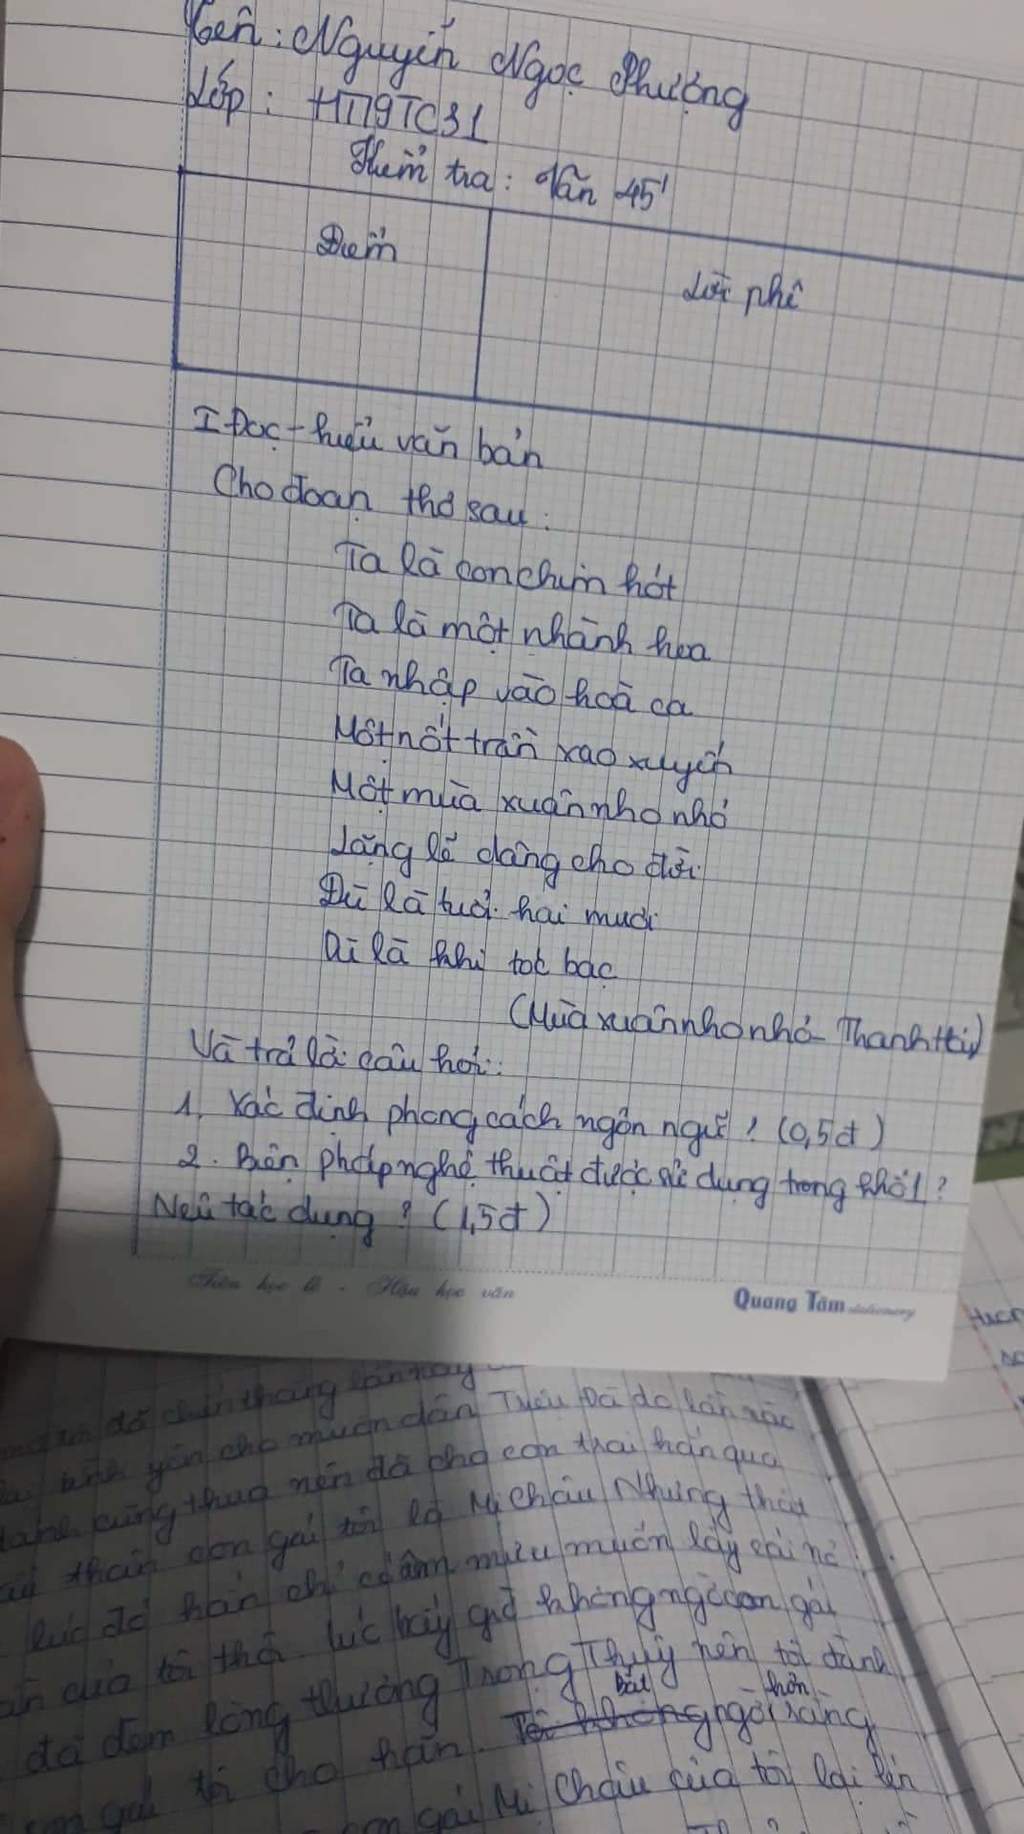 Tên: Nguyễn Ngọc Phượng
Lớp: HTT9TC31
Kiểm tra: Văn 45'
Điểm
Lời phê
I Đọc - hiểu văn bản
Cho đoạn thơ sau:
Ta là con chim hót
Ta là một nhành hoa
Ta nhập vào hoà ca
Một nốt trầm xao xuyến
Một mùa xuân nho nhỏ
Lặng lẽ dâng cho đời
Dù là tuổi hai mươi
Dù là khi tóc bạc
(Mùa xuân nho nhỏ - Thanh Hải)
Và trả lời câu hỏi:
1. Xác định phong cách ngôn ngữ? (0,5đ)
2. Biện pháp nghệ thuật được sử dụng trong khổ 1?
Nêu tác dụng? (1,5đ)
Tiên học lễ - Hậu học văn
Quang Tâm stationery
đã chiến thắng lần này
yên cho muôn dân Triệu Đà do lần trước
cũng thua nên đã cho con trai hắn qua
con gái tôi là Mị Châu Nhưng thật
lúc đó hắn chỉ có âm mưu muốn lấy cái nỏ
của tôi thôi lúc bấy giờ không ngờ con gái
đã đem lòng thương Trọng Thuỷ nên tôi đành
gái tôi cho hắn. bất ngờ hơn rằng
con gái Mị Châu của tôi lại lén